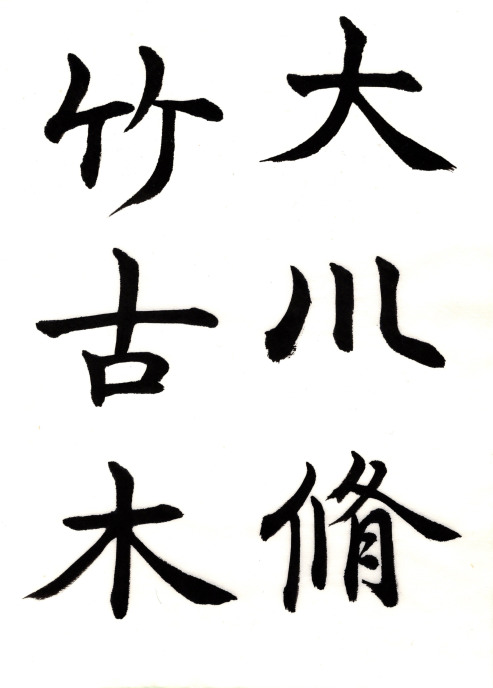 大川脩
竹古木